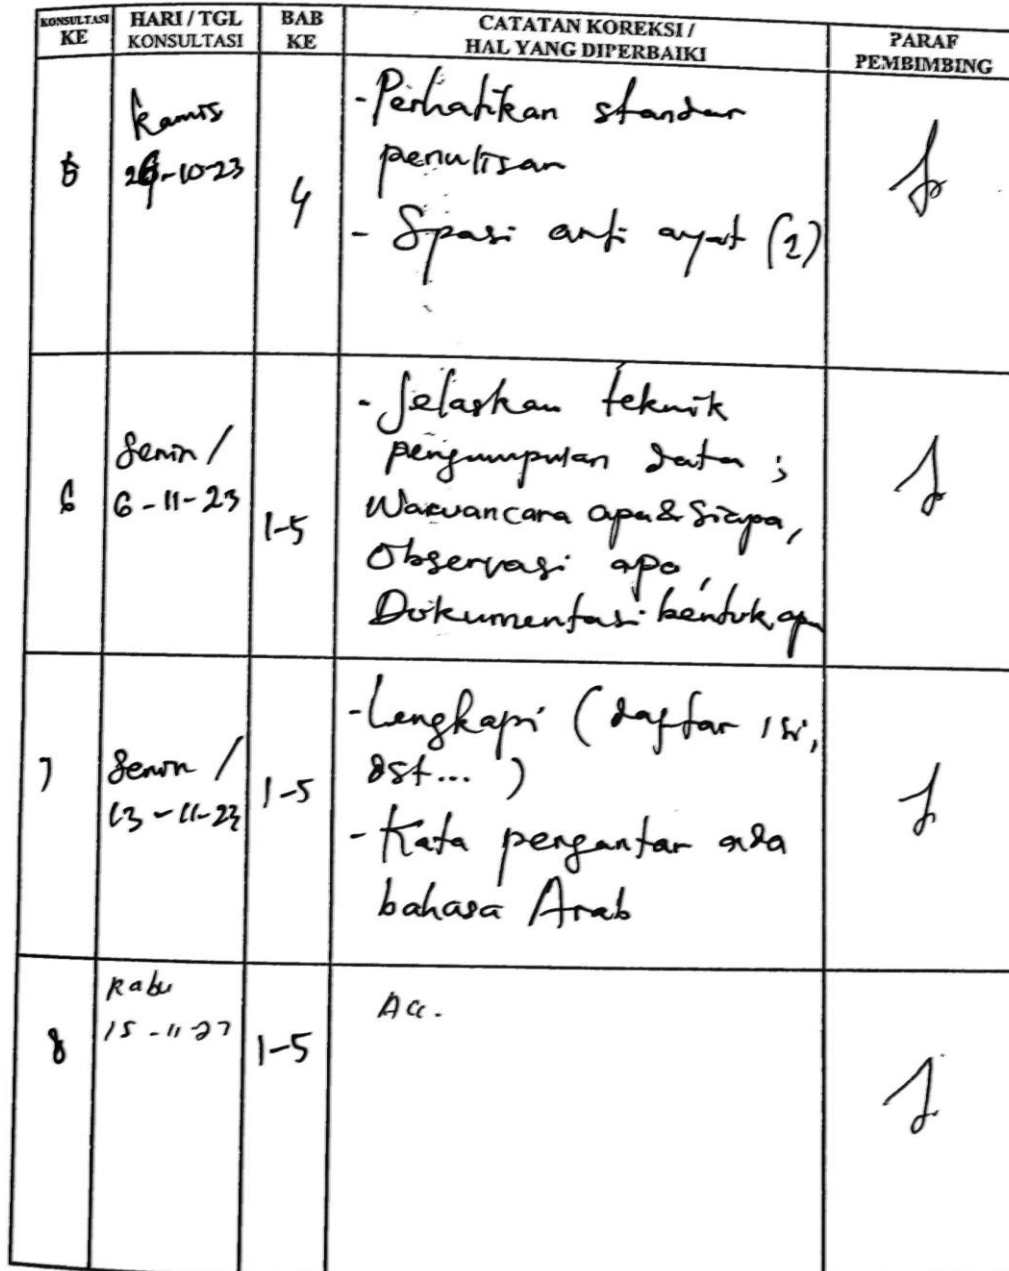 KONSULTASI KE
HARI / TGL KONSULTASI
BAB KE
CATATAN KOREKSI / HAL YANG DIPERBAIKI
PARAF PEMBIMBING
5
Kamis
26-10-23
4
- Perhatikan standar
penulisan
- Spasi arti ayat (1)
6
Senin /
6-11-23
1-5
- Jelaskan teknik
pengumpulan data ;
Wawancara apa & Siapa,
Observasi apa,
Dokumentasi bentuk ap
7
Senin /
13-11-23
1-5
- Lengkapi (daftar isi,
dst... )
- Kata pengantar ada
bahasa Arab
8
Rabu
15-11-23
1-5
Acc.